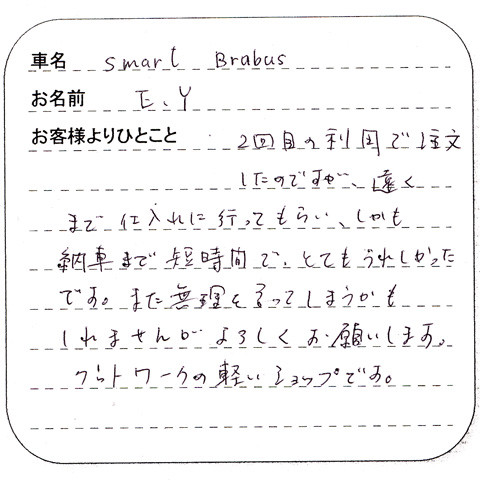 車名 smart Brabus
お名前 E.Y
お客様よりひとこと 2回目の利用で注文
したのですが、遠く
まで仕入れに行ってもらい、しかも
納車まで短時間で、とてもうれしかった
です。また無理を言ってしまうかも
しれませんがよろしくお願いします。
フットワークの軽いショップです。